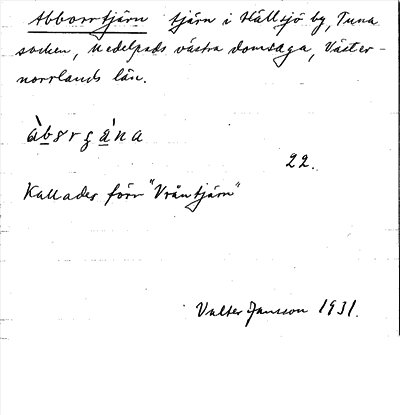 Abborrtjärn tjärn i Hällsjö by, Tuna
socken, Medelpads västra domsaga, Väster-
norrlands län.
22.
Kallades förr "Vråntjärn"
Valter Jansson 1931.